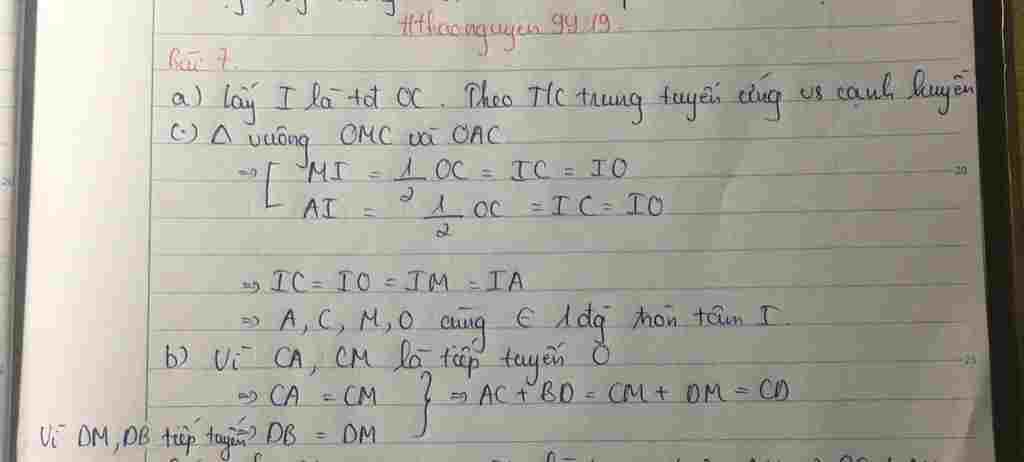 #thaonguyen 9419.
Bài 7.
a) lấy I là tđ OC. Theo T/C trung tuyến cứng vs cạnh huyền
(.) Δ vuông OMC và OAC
=> [ MI = 1/2 OC = IC = IO
AI = 1/2 OC = IC = IO
=> IC = IO = IM = IA
=> A, C, M, O cùng ∈ 1 đg tròn tâm I.
b) Vì CA, CM là tiếp tuyến O
=> CA = CM } => AC + BD = CM + DM = CD
Vì DM, DB tiếp tuyến => DB = DM
20
25